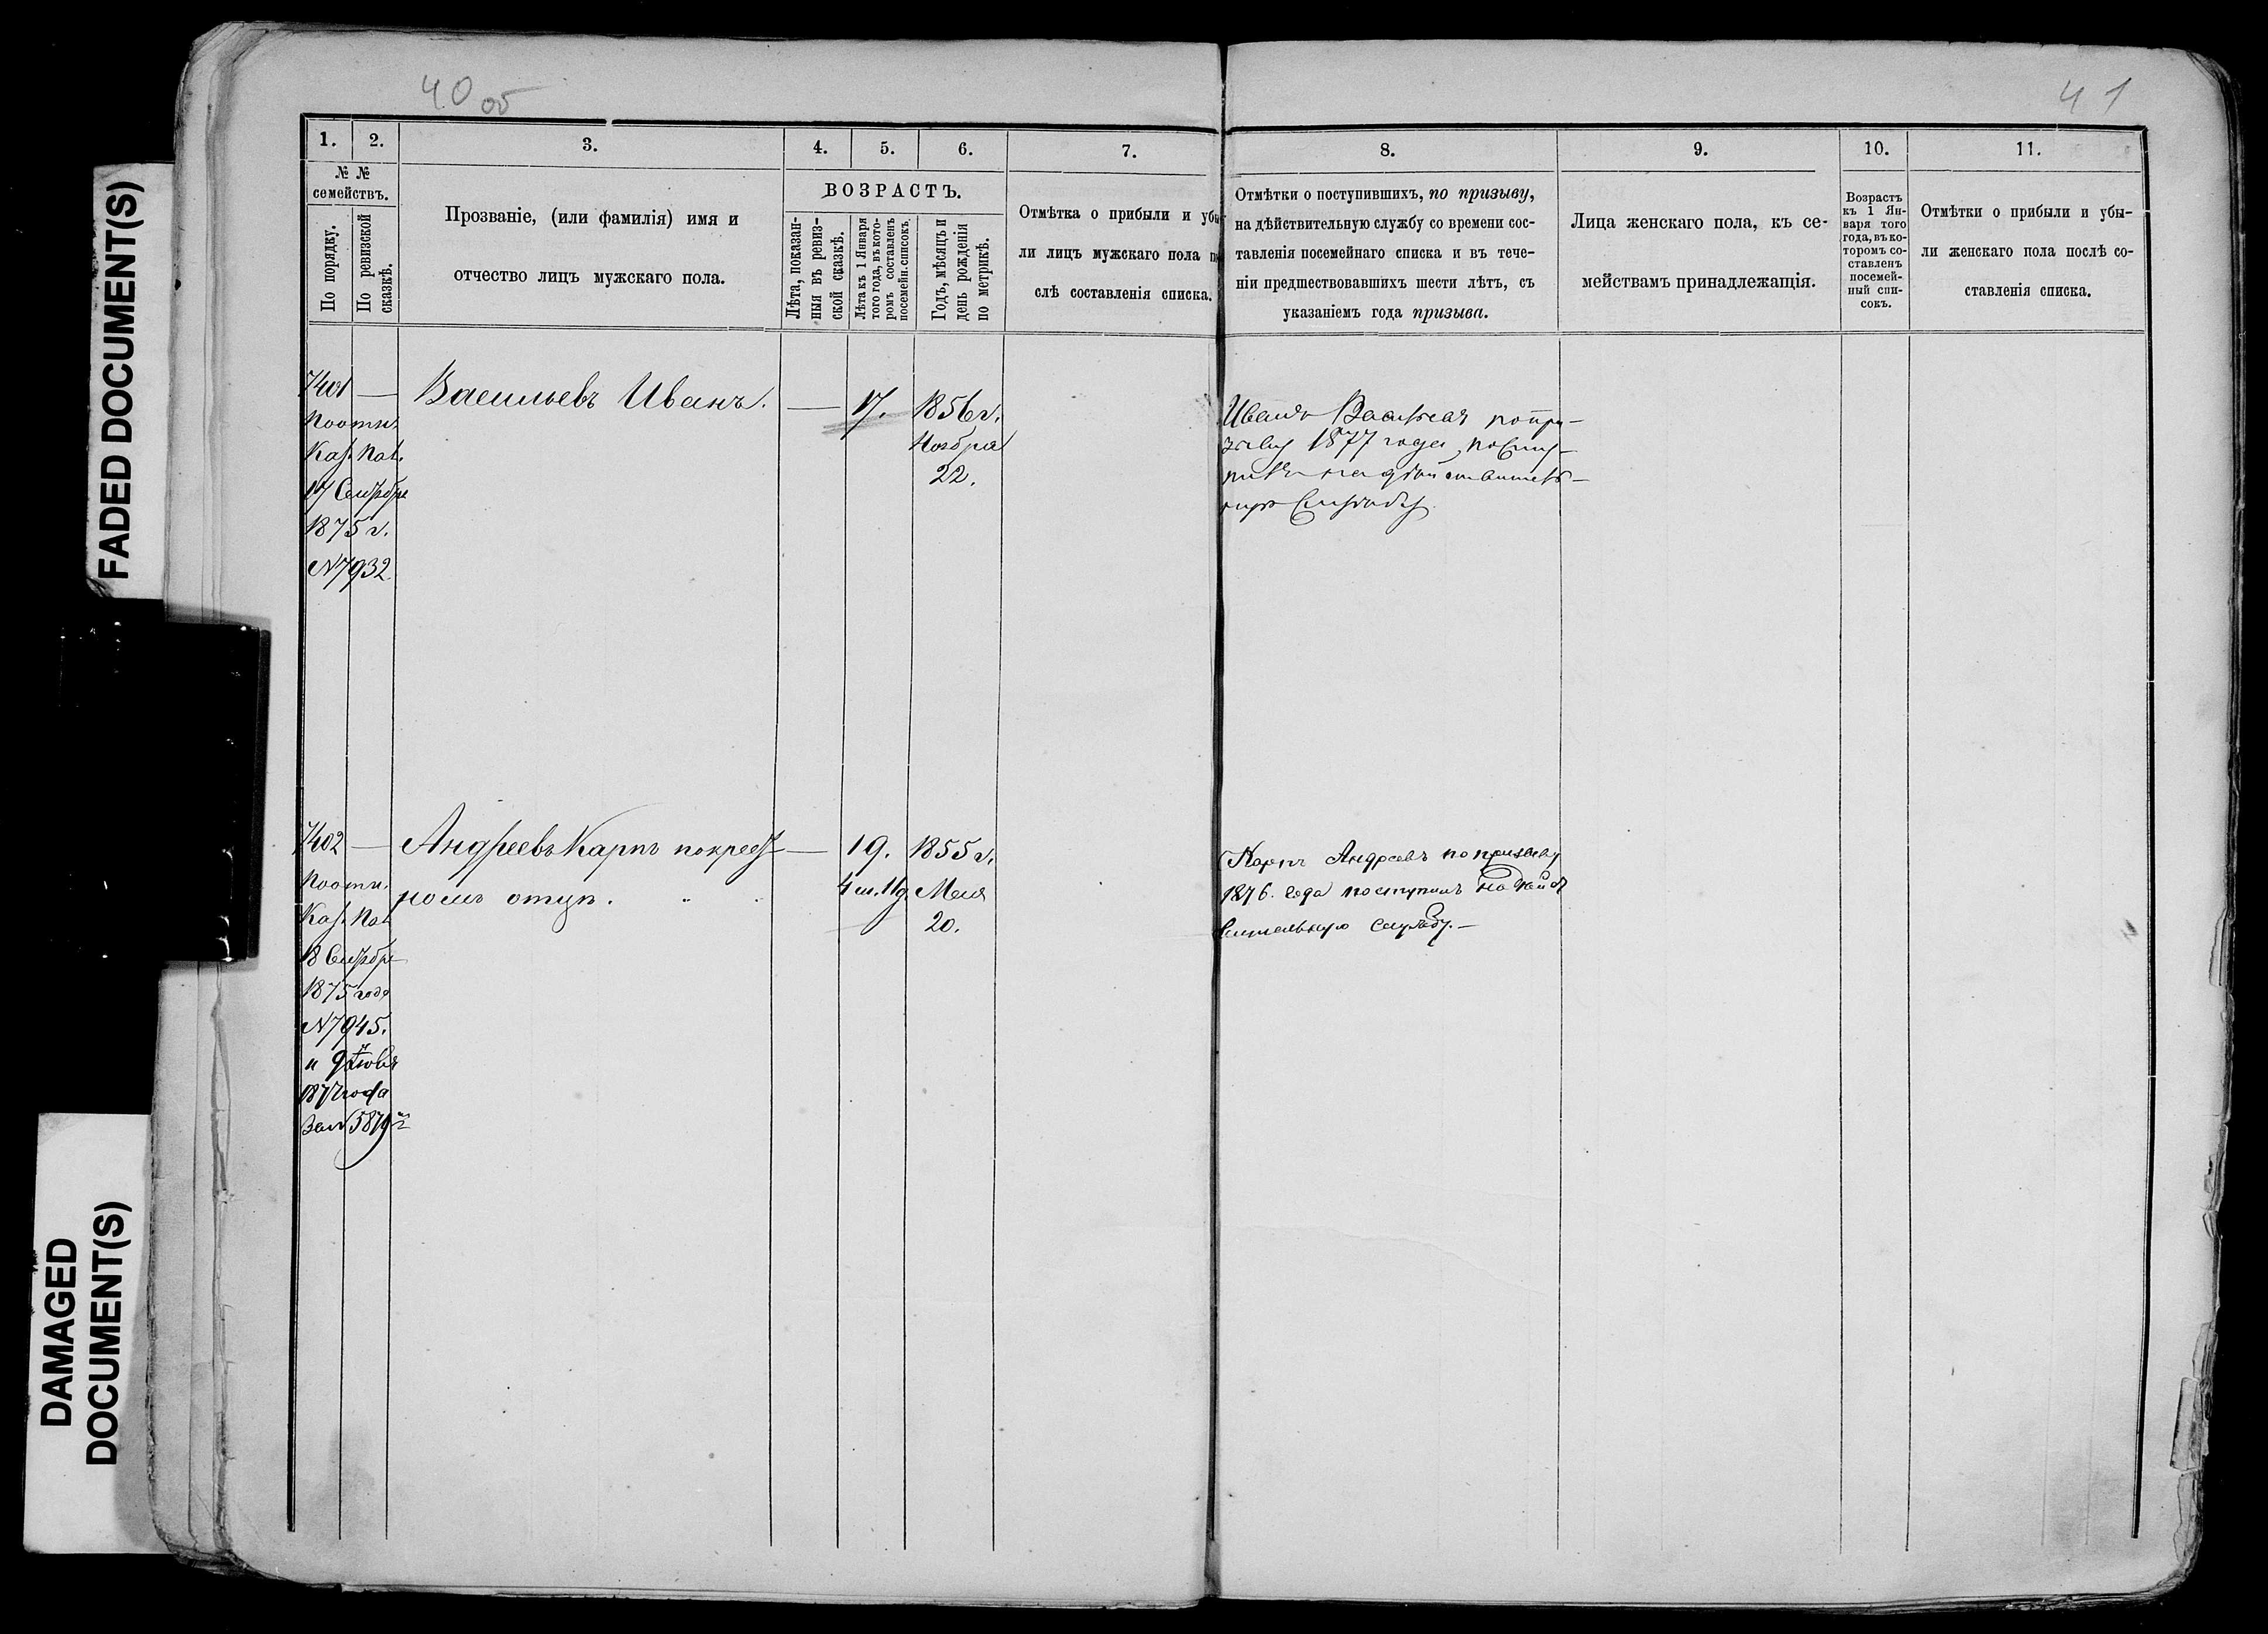 FADED DOCUMENT(S)
DAMAGED
DOCUMENT(S)
40 об
41
1.
2.
3.
4.
5.
6.
7.
8.
9.
10.
11.
№ №
семействъ.
По порядку.
По ревизской
сказкѣ.
Прозваніе, (или фамилія) имя и
отчество лицъ мужскаго пола.
ВОЗРАСТЪ.
Лѣта, показан-
ныя въ ревиз-
ской сказкѣ.
Лѣта къ 1 Января
того года, въ кото-
ромъ составленъ
посемейн. списокъ.
Годъ, мѣсяцъ и
день рожденія
по метрикѣ.
Отмѣтка о прибыли и убы-
ли лицъ мужскаго пола по-
слѣ составленія списка.
Отмѣтки о поступившихъ, по призыву,
на дѣйствительную службу со времени сос-
тавленія посемейнаго списка и въ тече-
ніи предшествовавшихъ шести лѣтъ, съ
указаніемъ года призыва.
Лица женскаго пола, къ се-
мействамъ принадлежащія.
Возрастъ
къ 1 Ян-
варя того
года, въ ко-
торомъ со-
ставленъ
посемей-
ный спи-
сокъ.
Отмѣтки о прибыли и убы-
ли женскаго пола послѣ со-
ставленія списка.
7401 —
Каз. Пал.
1875 г.
N7932
Васильевъ Иванъ.
—
17.
1856 г.
Ноября
22.
Иванъ Васильевъ по при-
зыву 1877 года, посту-
пилъ на дѣйствитель-
ную службу.
7402 —
Каз. Пал
1875 года
N7945.
1877 года
Андреевъ Карпъ по крест-
ному отцу.
—
19.
1855 г.
Мая
20.
Карпъ Андреевъ по призыву
1876. года поступилъ на дѣйст
вительную службу. —